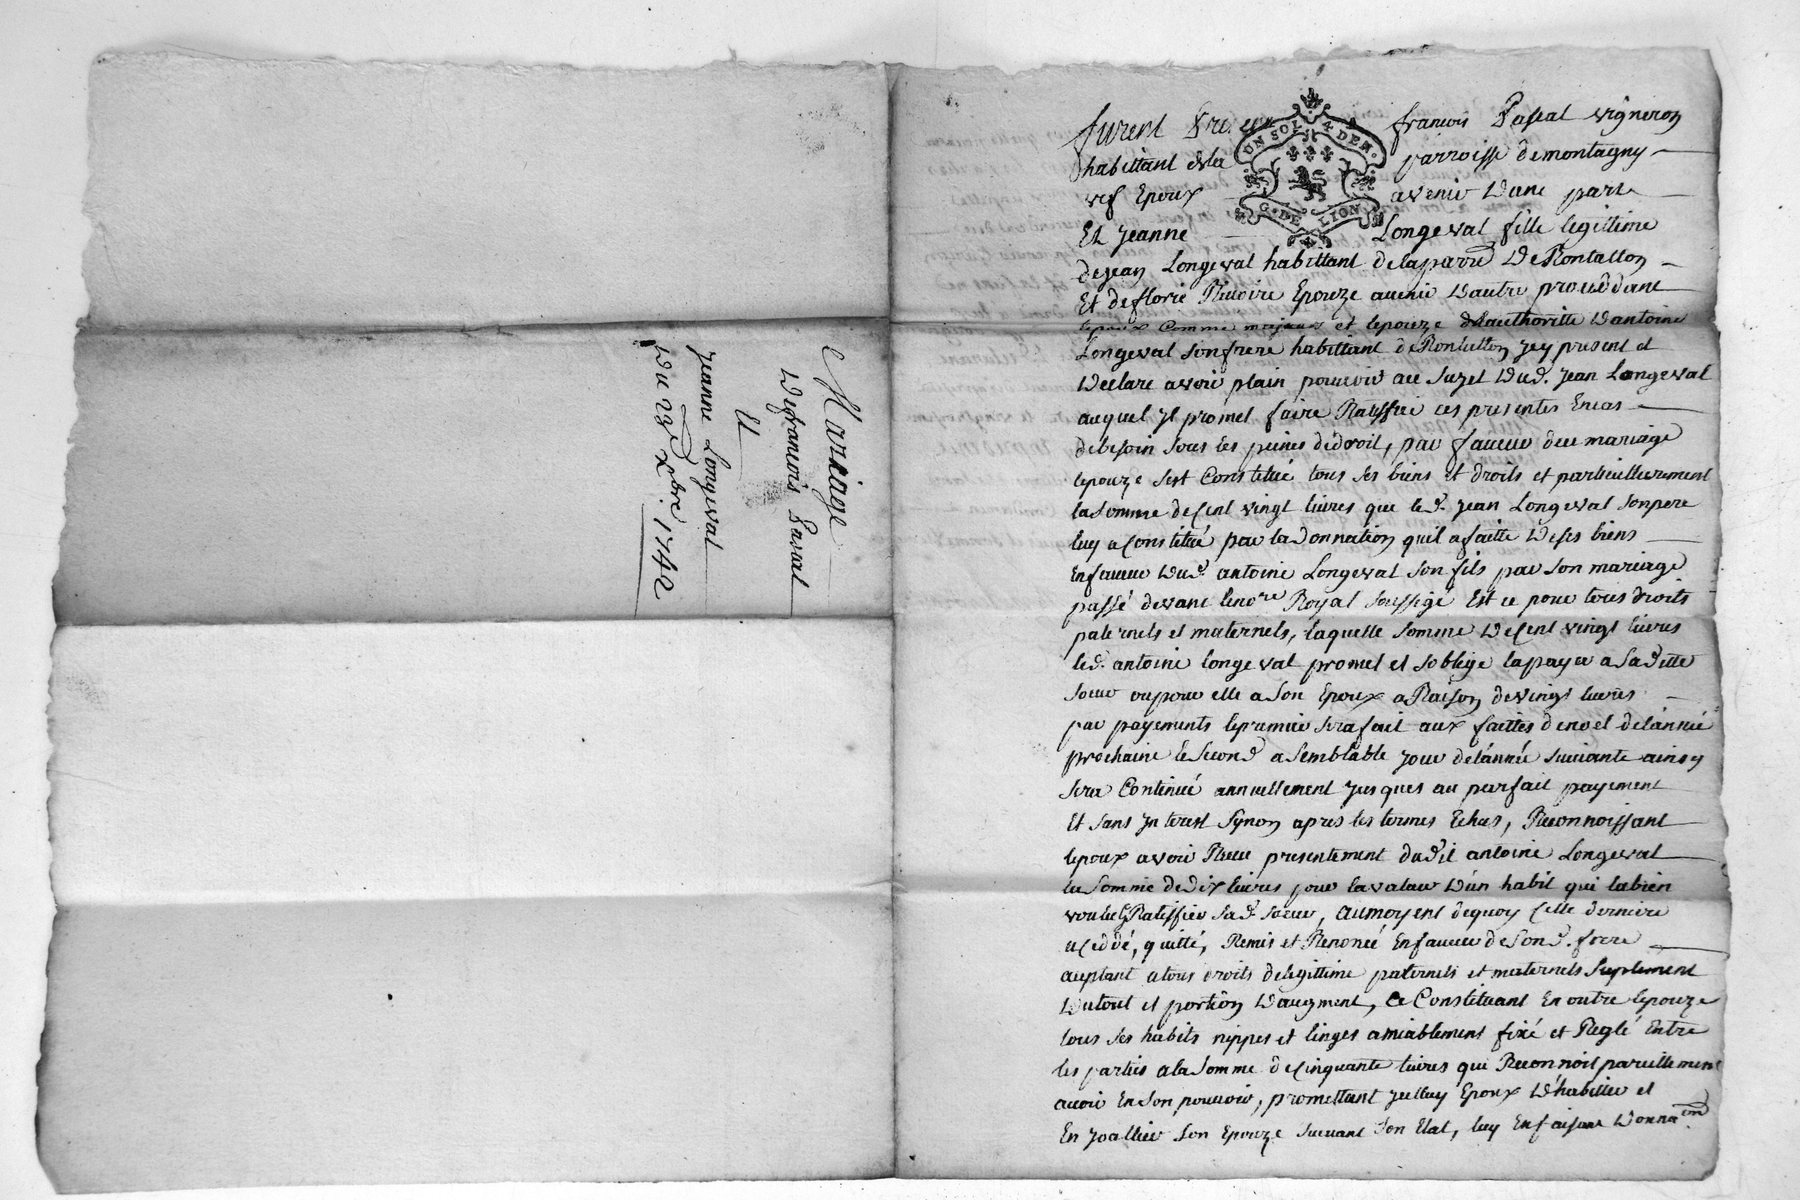 Mariage
De francois Pascal
Et
Jeanne Longeval
Du 23 xbre 1742
UN SOL 4 DEN.
G. DE LION
furent françois Pascal vigneron
habittant dela parroisse de montagny
vef Epoux avenir Dune part
Et Jeanne Longeval fille legittime
de jean Longeval habittant de la parr. De Rontallon
Et de florie Epouze avenir Dautre proceddant
lepoux Comme majeur et lepouze de lauthoritte Dantoine
Longeval son frere habittant de Rontallon Jcy present et
Declare avoir plain pouvoir au sujet Dud. Jean Longeval
auquel Jl promet faire Ratiffier ces presentes En cas
de besoin sous les peines de droit, par faveur du mariage
lepouze sest Constitué tous ses biens et droits et particulierement
la somme de Cent vingt livres que led. Jean Longeval son pere
luy a Constitué par la Donnation quil a faitte De ses biens
En faveur Dud. antoine Longeval son fils par son mariage
passé devant le nore Royal soussigé Est ce pour tous droits
paternels et maternels, laquelle somme De Cent vingt livres
led. antoine longeval promet et soblige la payer a sa ditte
soeur ou pour elle a son Epoux a Raison de vingt livres
par payements le premier sera fait aux faittes de noel de lánnée
prochaine le second a semblable jour de lánnée suivante ainsy
sera Continué annuellement Jusques au parfait payement
Et sans Jnterest synon apres les termes Echus, Reconnoissant
lepoux avoir Receu presentement dudit antoine Longeval
la somme de dix livres pour la valeur D'un habit qui la bien
voulu Gratiffier sad. soeur, au moyent de quoy Cette derniere
a Ceddé, quitté, Remis et Renoncé En faveur de son d. frere
aceptant a tous droits de legittime paternels et maternels suplement
Dutout et portion Daugment, Ce Constituant En outre lepouze
tous ses habits nippes et linges amiablement fixé et Reglé Entre
les parties a la somme de Cinquante livres qui Reconnoit pareillement
avoir En son pouvoir, promettant Jcelluy Epoux D'habiller et
En Joallier son Epouze suivant son Etat, luy En faisant Donnaon